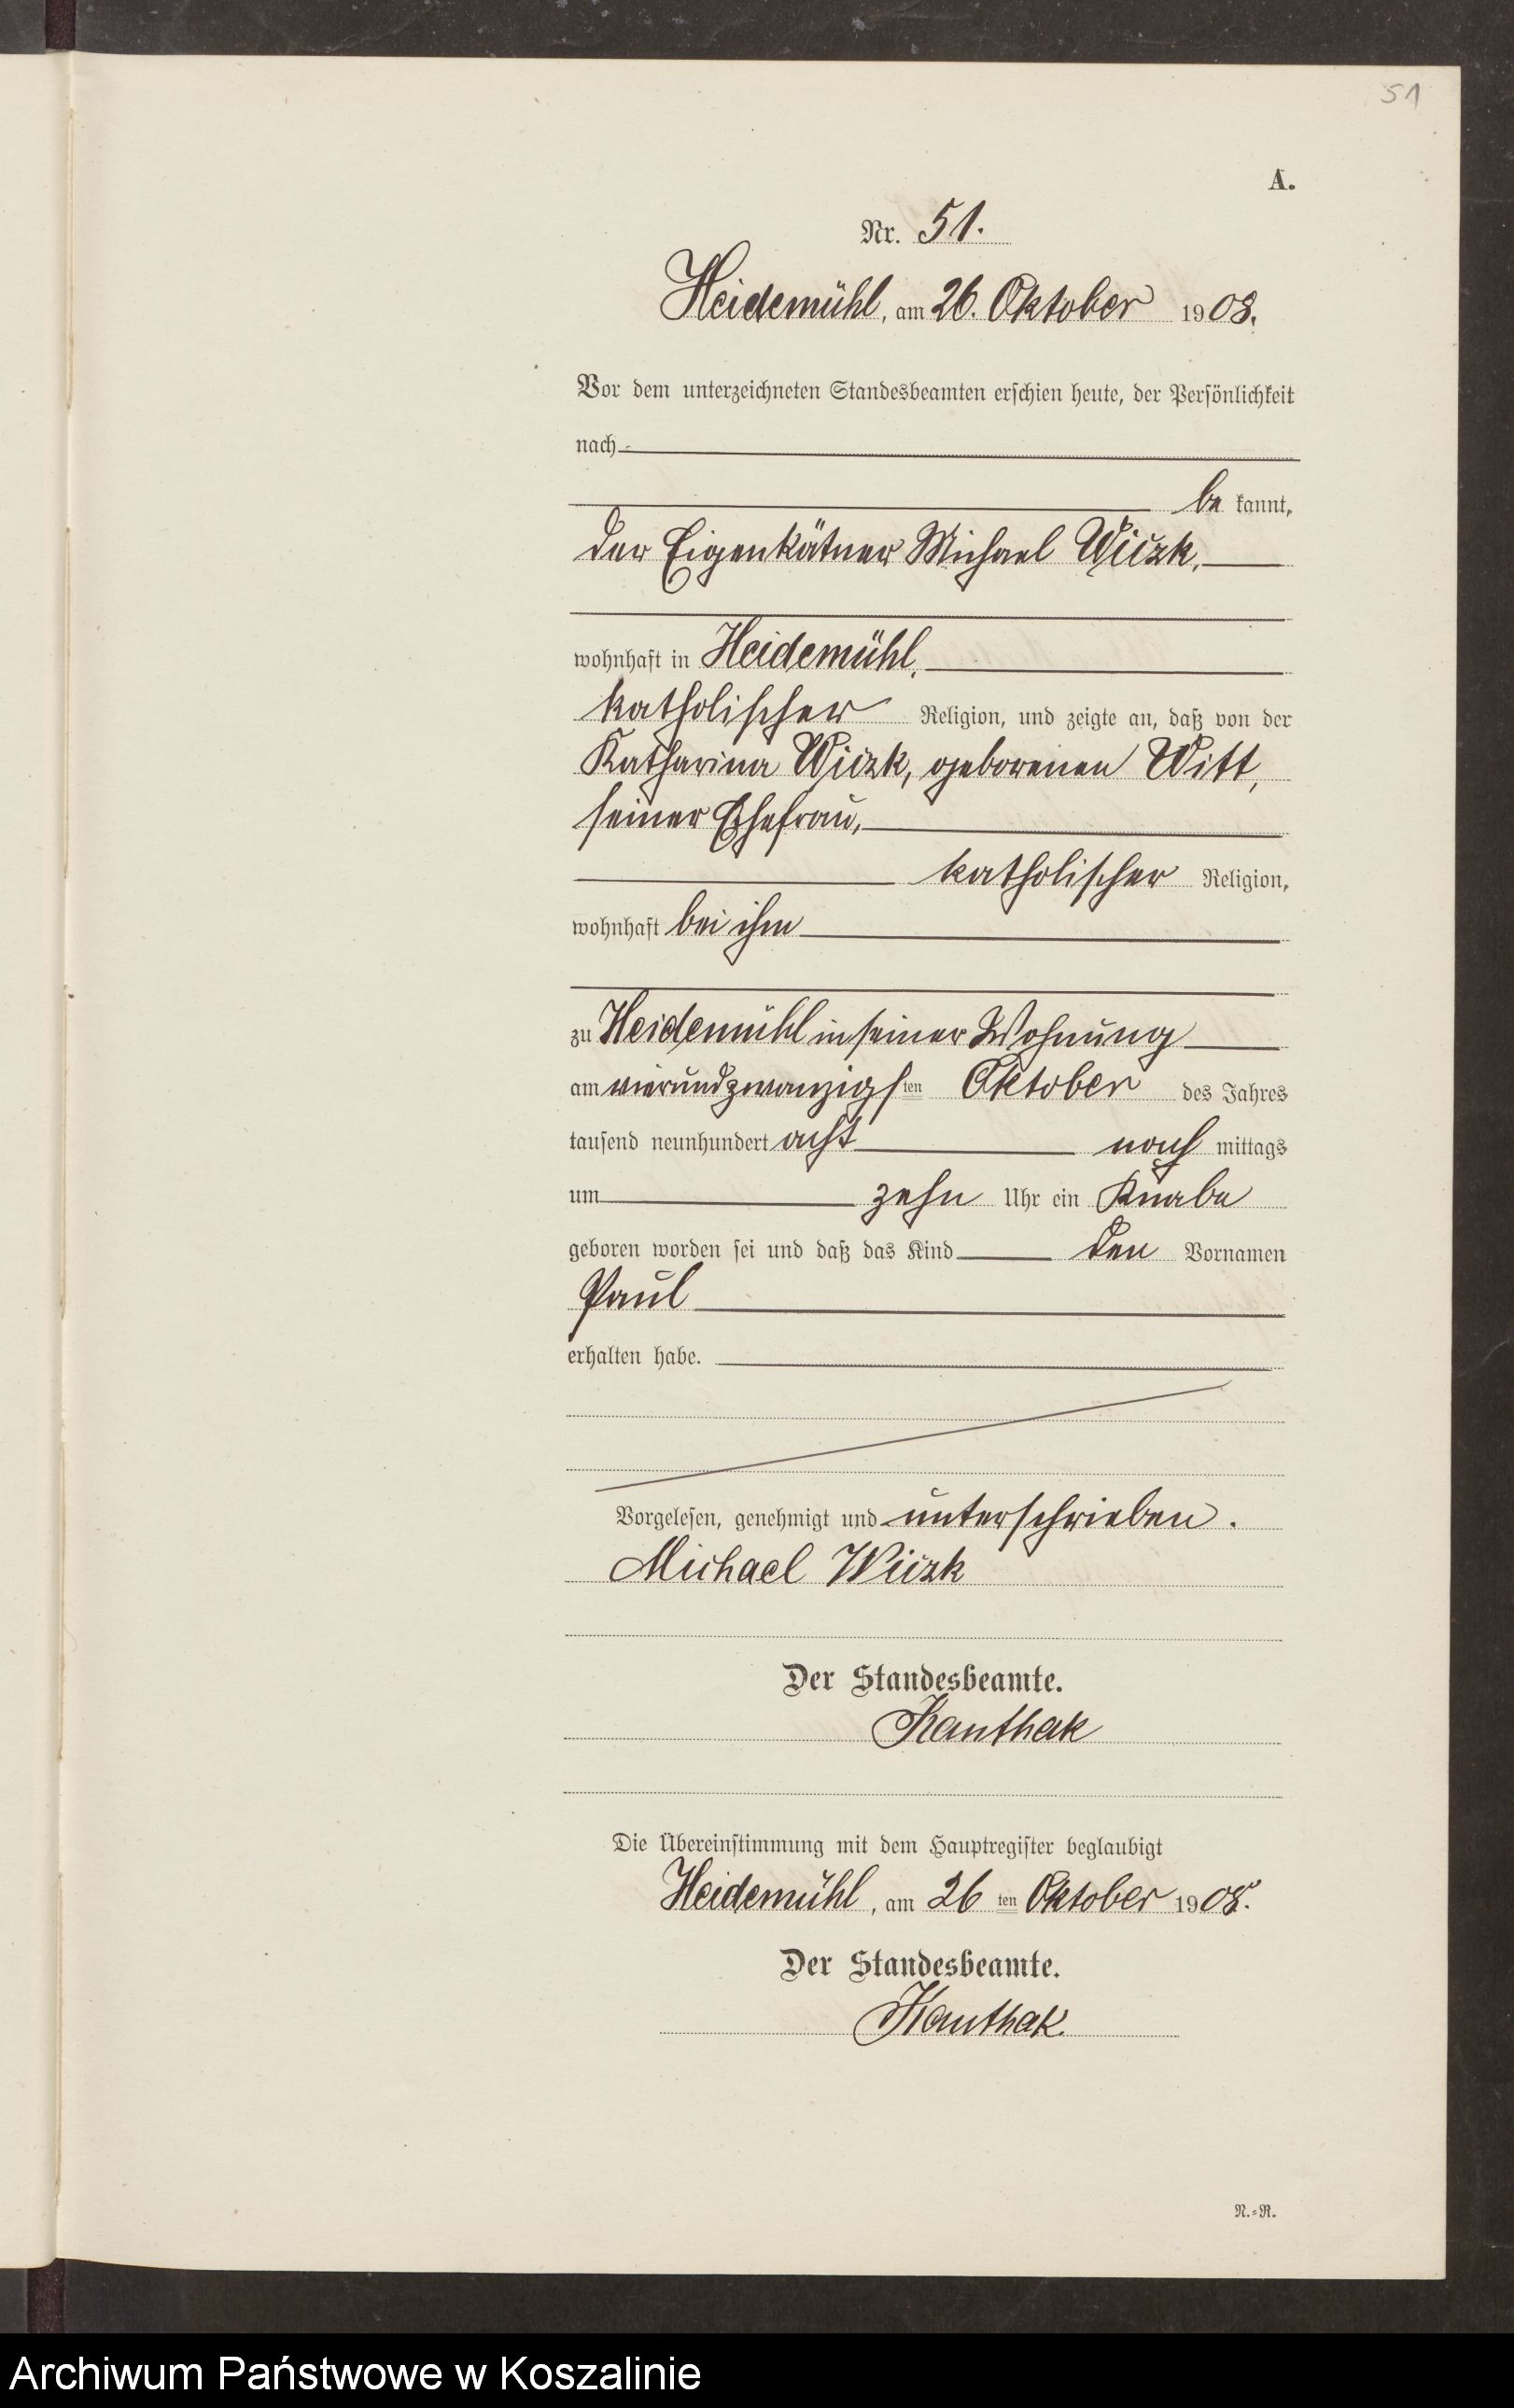 51
A.
Nr. 51.
Heidemühl, am 26. Oktober 1908.
Vor dem unterzeichneten Standesbeamten erschien heute, der Persönlichkeit
nach
be kannt,
der Eigenkätner Michael Wiczk,
wohnhaft in Heidemühl,
katholischer Religion, und zeigte an, daß von der
Katharina Wiczk, geborenen Witt,
seiner Ehefrau,
katholischer Religion,
wohnhaft bei ihm
zu Heidemühl in seiner Wohnung
am vierundzwanzigsten Oktober des Jahres
tausend neunhundert acht nach mittags
um zehn Uhr ein Knabe
geboren worden sei und daß das Kind den Vornamen
Paul
erhalten habe.
Vorgelesen, genehmigt und unterschrieben.
Michael Wiczk
Der Standesbeamte.
Kanthak
Die Übereinstimmung mit dem Hauptregister beglaubigt
Heidemühl, am 26 ten Oktober 1908.
Der Standesbeamte.
Kanthak.
N.=R.
Archiwum Państwowe w Koszalinie